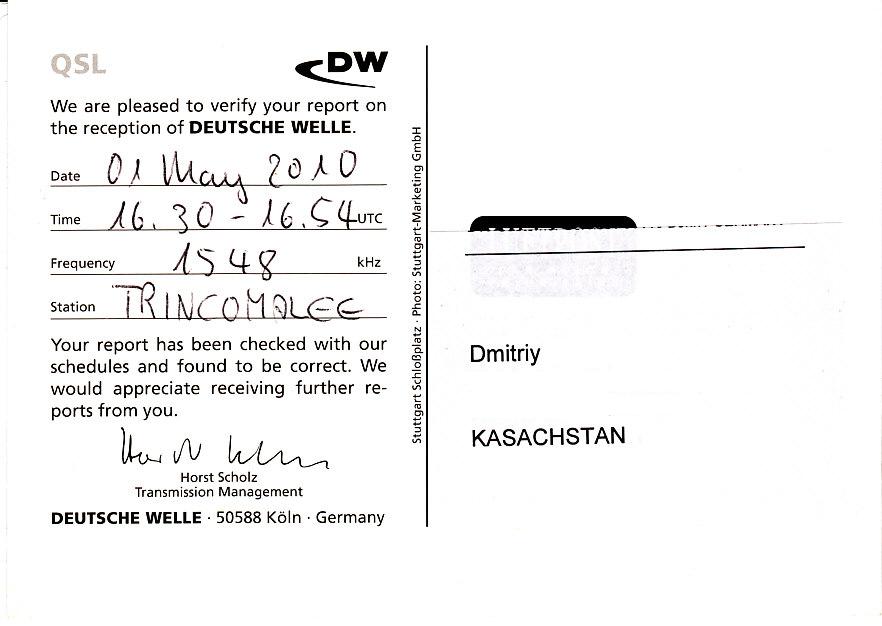 QSL
DW
We are pleased to verify your report on
the reception of DEUTSCHE WELLE.
Date 01 May 2010
Time 16.30 - 16.54 UTC
Frequency 1548 kHz
Station TRINCOMALEE
Your report has been checked with our
schedules and found to be correct. We
would appreciate receiving further re-
ports from you.
Horst Scholz
Transmission Management
DEUTSCHE WELLE · 50588 Köln · Germany
Stuttgart Schloßplatz · Photo: Stuttgart-Marketing GmbH
Dmitriy
KASACHSTAN